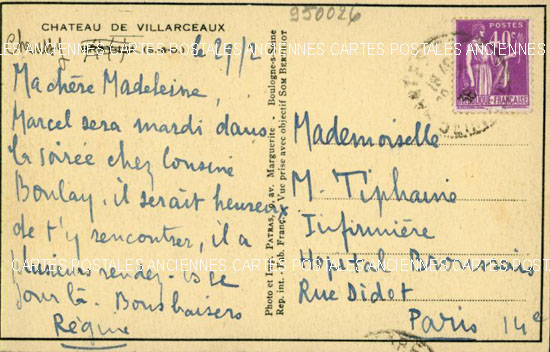 950026
CHATEAU DE VILLARCEAUX
le 29/2
Ma chère Madeleine,
Marcel sera mardi dans
la soirée chez Cousine
Boulay. il serait heureux
de t'y rencontrer, il a
plusieurs rendez-vs ce
jour là. Bons baisers
Régine
Photo et Imp. PATRAS, av. Marguerite - Boulogne-s-Seine
Rep. int. - Fab. Franç. - Vue prise avec objectif SOM BERTHIOT
POSTES
40c
REPUBLIQUE FRANÇAISE
Mademoiselle
M. Tiphaine
Infirmière
Hopital Broussais
Rue Didot
Paris 14e
CARTES POSTALES ANCIENNES CARTES POSTALES ANCIENNES
CARTES POSTALES ANCIENNES CARTES POSTALES ANCIENNES